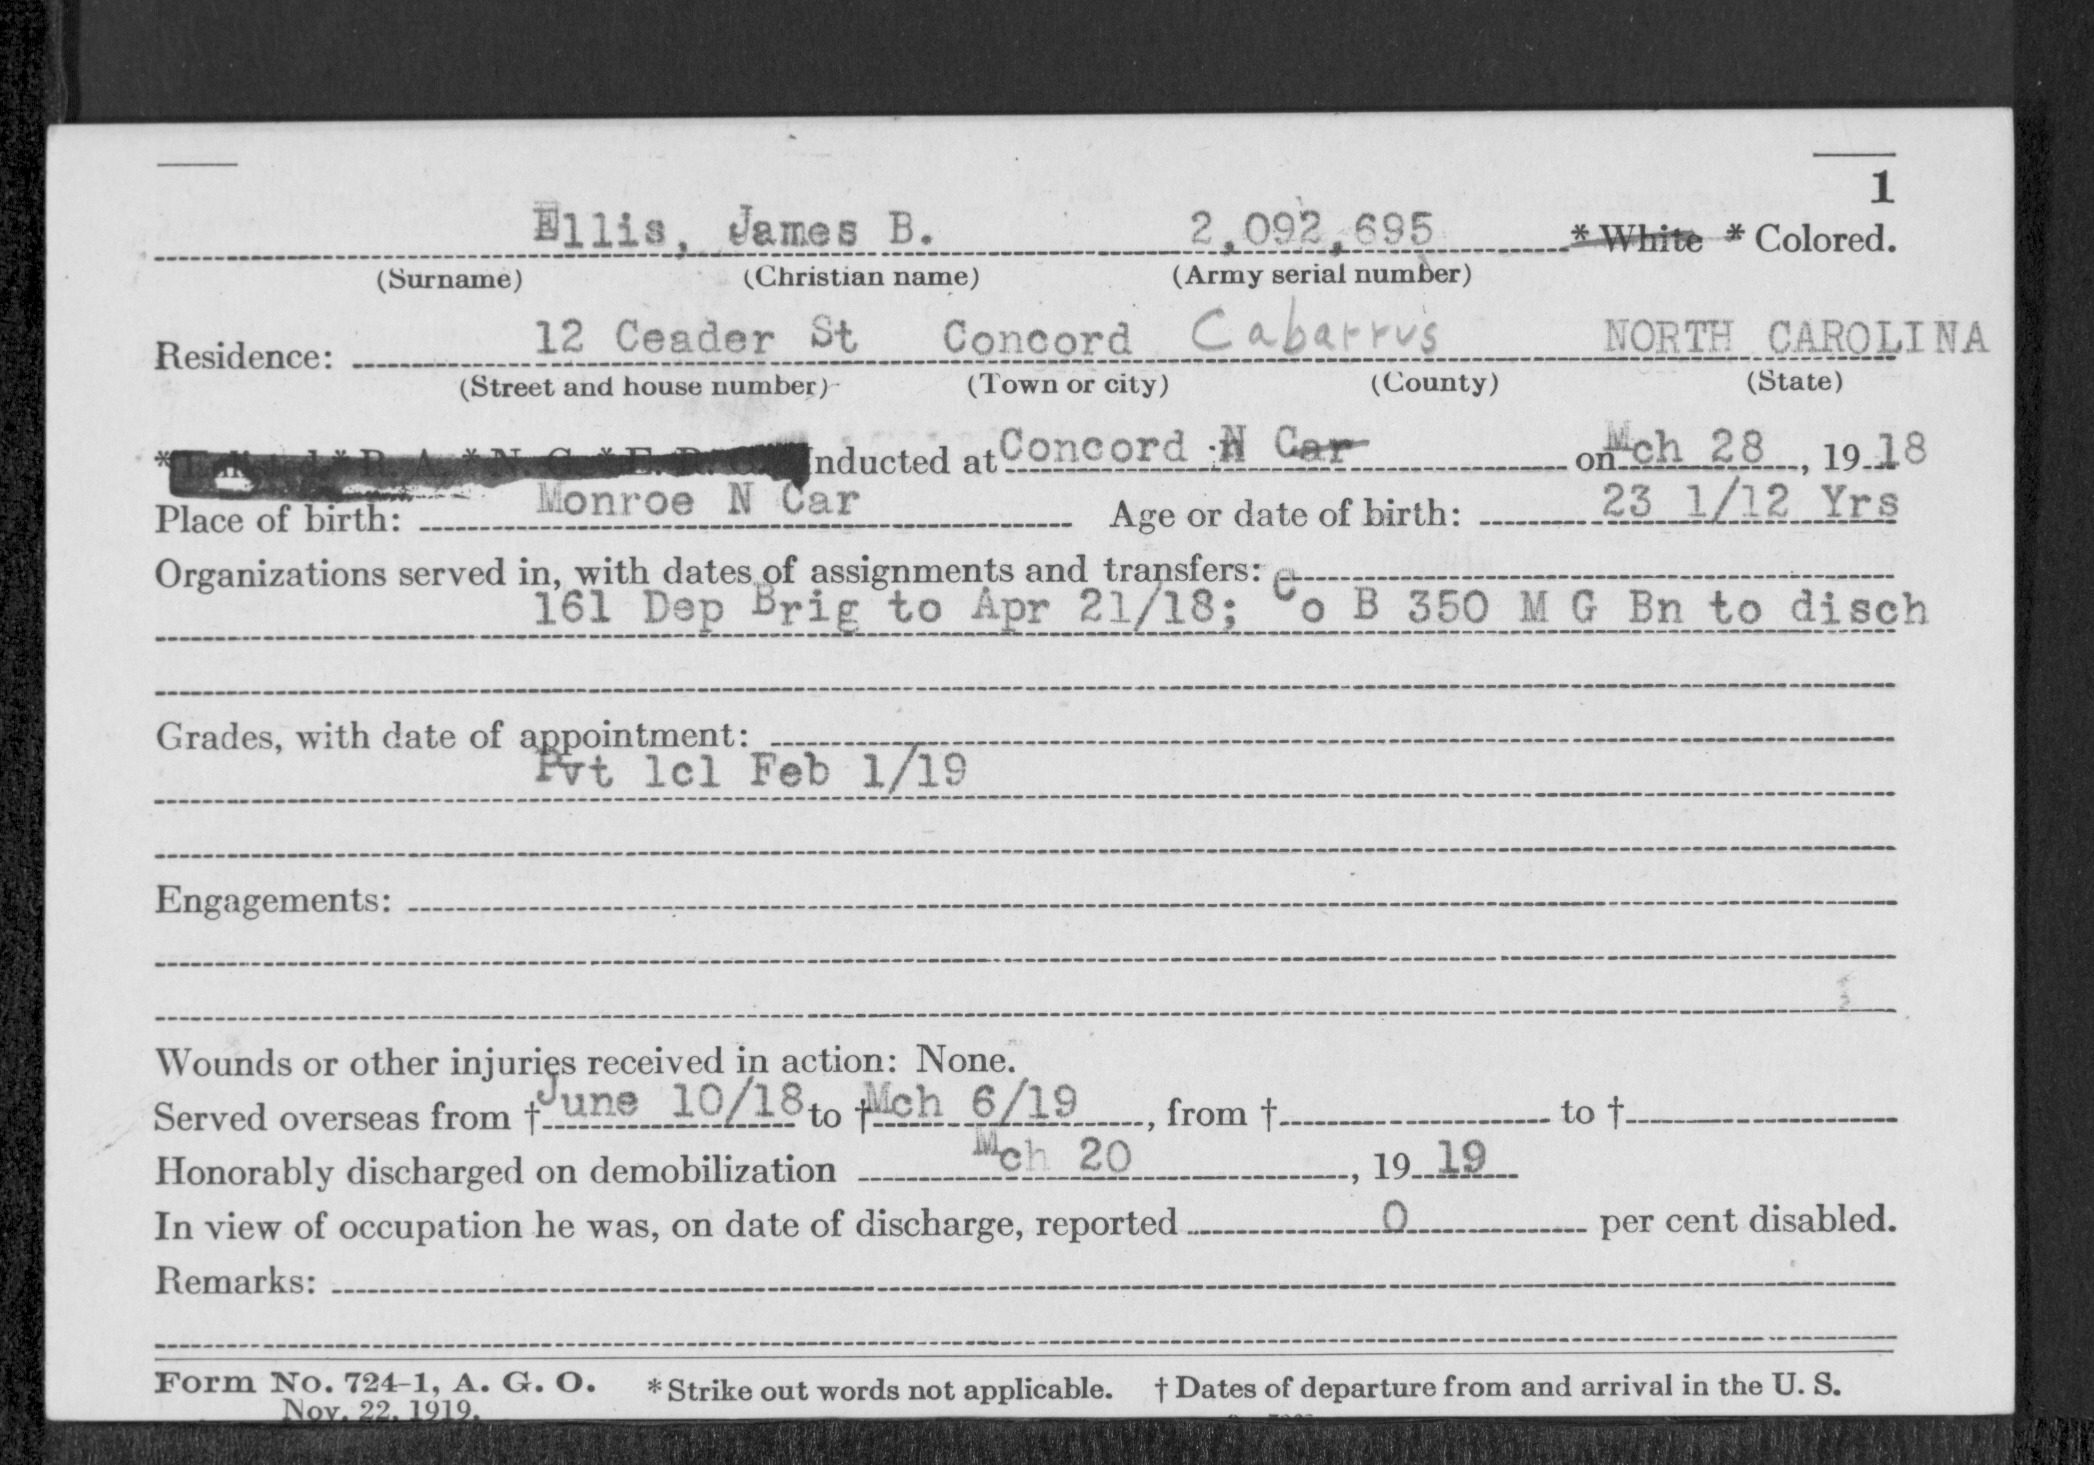 1
Ellis, James B. 2,092,695 * White * Colored.
(Surname) (Christian name) (Army serial number)
12 Ceader St Concord Cabarrus NORTH CAROLINA
Residence:
(Street and house number) (Town or city) (County) (State)
* Enlisted * R. A. * N. G. * E. R. C. Inducted at Concord N Car on Mch 28, 19 18
Place of birth: Monroe N Car Age or date of birth: 23 1/12 Yrs
Organizations served in, with dates of assignments and transfers:
161 Dep Brig to Apr 21/18; Co B 350 M G Bn to disch
Grades, with date of appointment:
Pvt 1cl Feb 1/19
Engagements:
Wounds or other injuries received in action: None.
Served overseas from † June 10/18 to † Mch 6/19, from † to †
Honorably discharged on demobilization Mch 20, 19 19
In view of occupation he was, on date of discharge, reported 0 per cent disabled.
Remarks:
Form No. 724-1, A. G. O. * Strike out words not applicable. † Dates of departure from and arrival in the U. S.
Nov. 22, 1919.